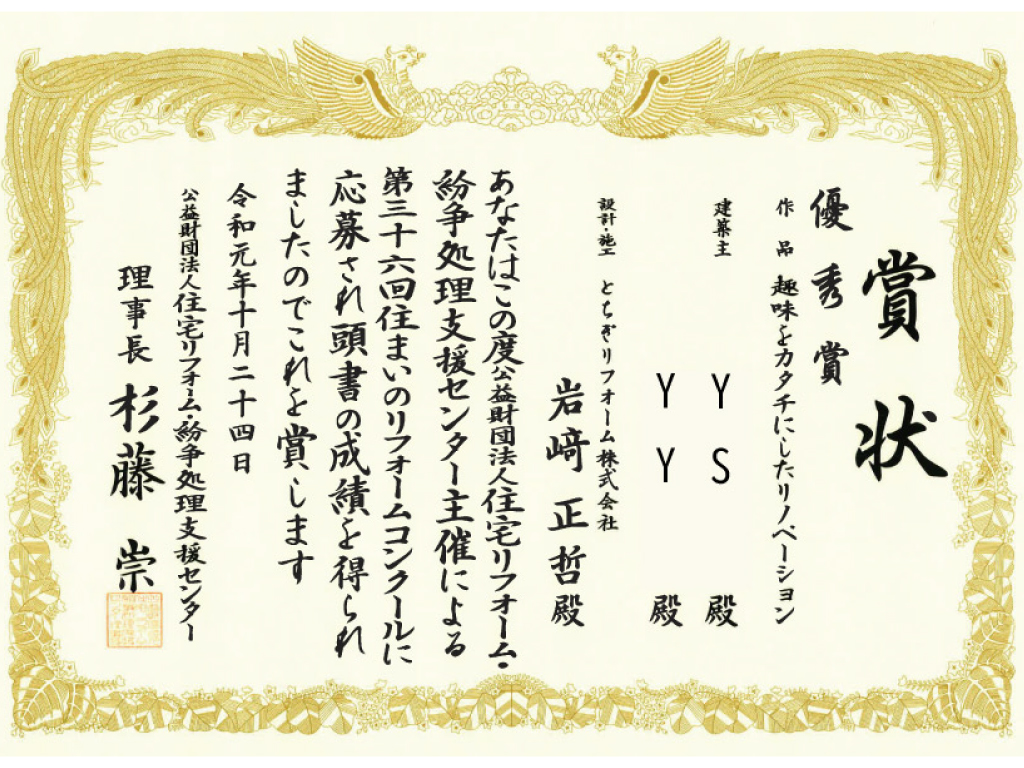 賞状
優秀賞
作品 趣味をカタチにしたリノベーション
建築主 YS 殿
YY 殿
設計・施工 とちぎリフォーム株式会社
岩﨑正哲殿
あなたはこの度公益財団法人住宅リフォーム・
紛争処理支援センター主催による
第三十六回住まいのリフォームコンクールに
応募され頭書の成績を得られ
ましたのでこれを賞します
令和元年十月二十四日
公益財団法人住宅リフォーム・紛争処理支援センター
理事長 杉藤 崇